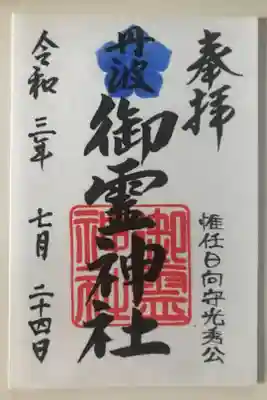 奉拝
惟任日向守光秀公
丹波
御霊神社
御霊神社
令和三年七月二十四日